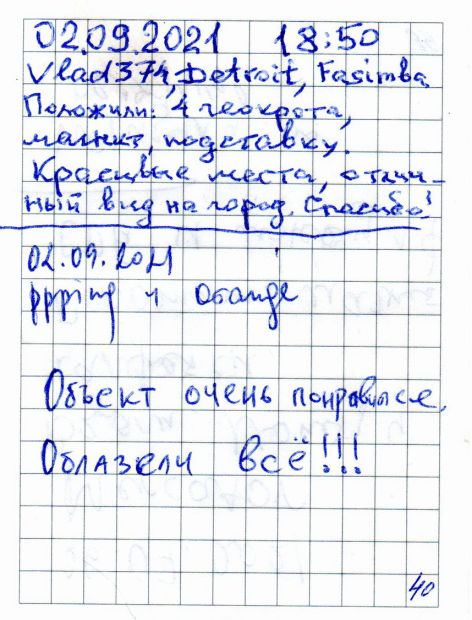 02.09.2021 18:50
Vlad374, Detroit, Fasimba
Положили: 4 геокрота,
магнит, подставку.
Красивые места, отлич-
ный вид на город. Спасибо!
02.09.2021
ppping и Orange
Объект очень понравился.
Облазели всё!!!
40